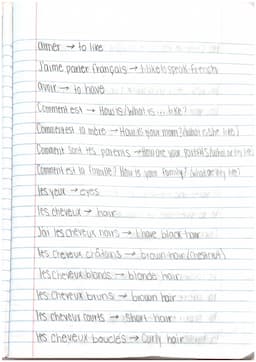 aimer → to like
J'aime parler français → I like to speak French
avoir → to have
Comment est → How is / What is ... like?
Comment est ta mère → How is your mom? (what is she like)
Comment sont tes parents → How are your parents (what are they like)
Comment est ta famille? How is your family? (what are they like)
les yeux → eyes
les cheveux → hair
J'ai les cheveux noirs → I have black hair
les cheveux châtains → brown hair (chestnut)
les cheveux blonds → blonde hair
les cheveux bruns → brown hair
les cheveux courts → short hair
les cheveux bouclés → curly hair